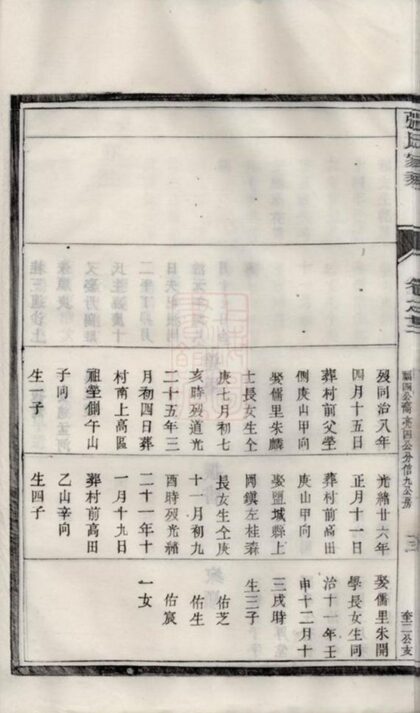 張氏宗譜
卷之
公支
歿同治八年
四月十五日
葬村前父塋
側庚山甲向
娶儒里朱麟
士長女生仝
庚七月初七
亥時歿道光
二十五年三
月初四日葬
村南上高區
祖塋側午山
子向
生一子
光緒廿六年
正月十一日
葬村前高田
庚山甲向
娶鹽城縣上
岡鎮左桂森
長女生仝庚
十一月初九
酉時歿光緒
二十一年十
一月十九日
葬村前高田
乙山辛向
生四子
娶儒里朱開
學長女生同
治十一年壬
申十二月十
三戌時
生三子
佑芝
佑生
佑宸
一女